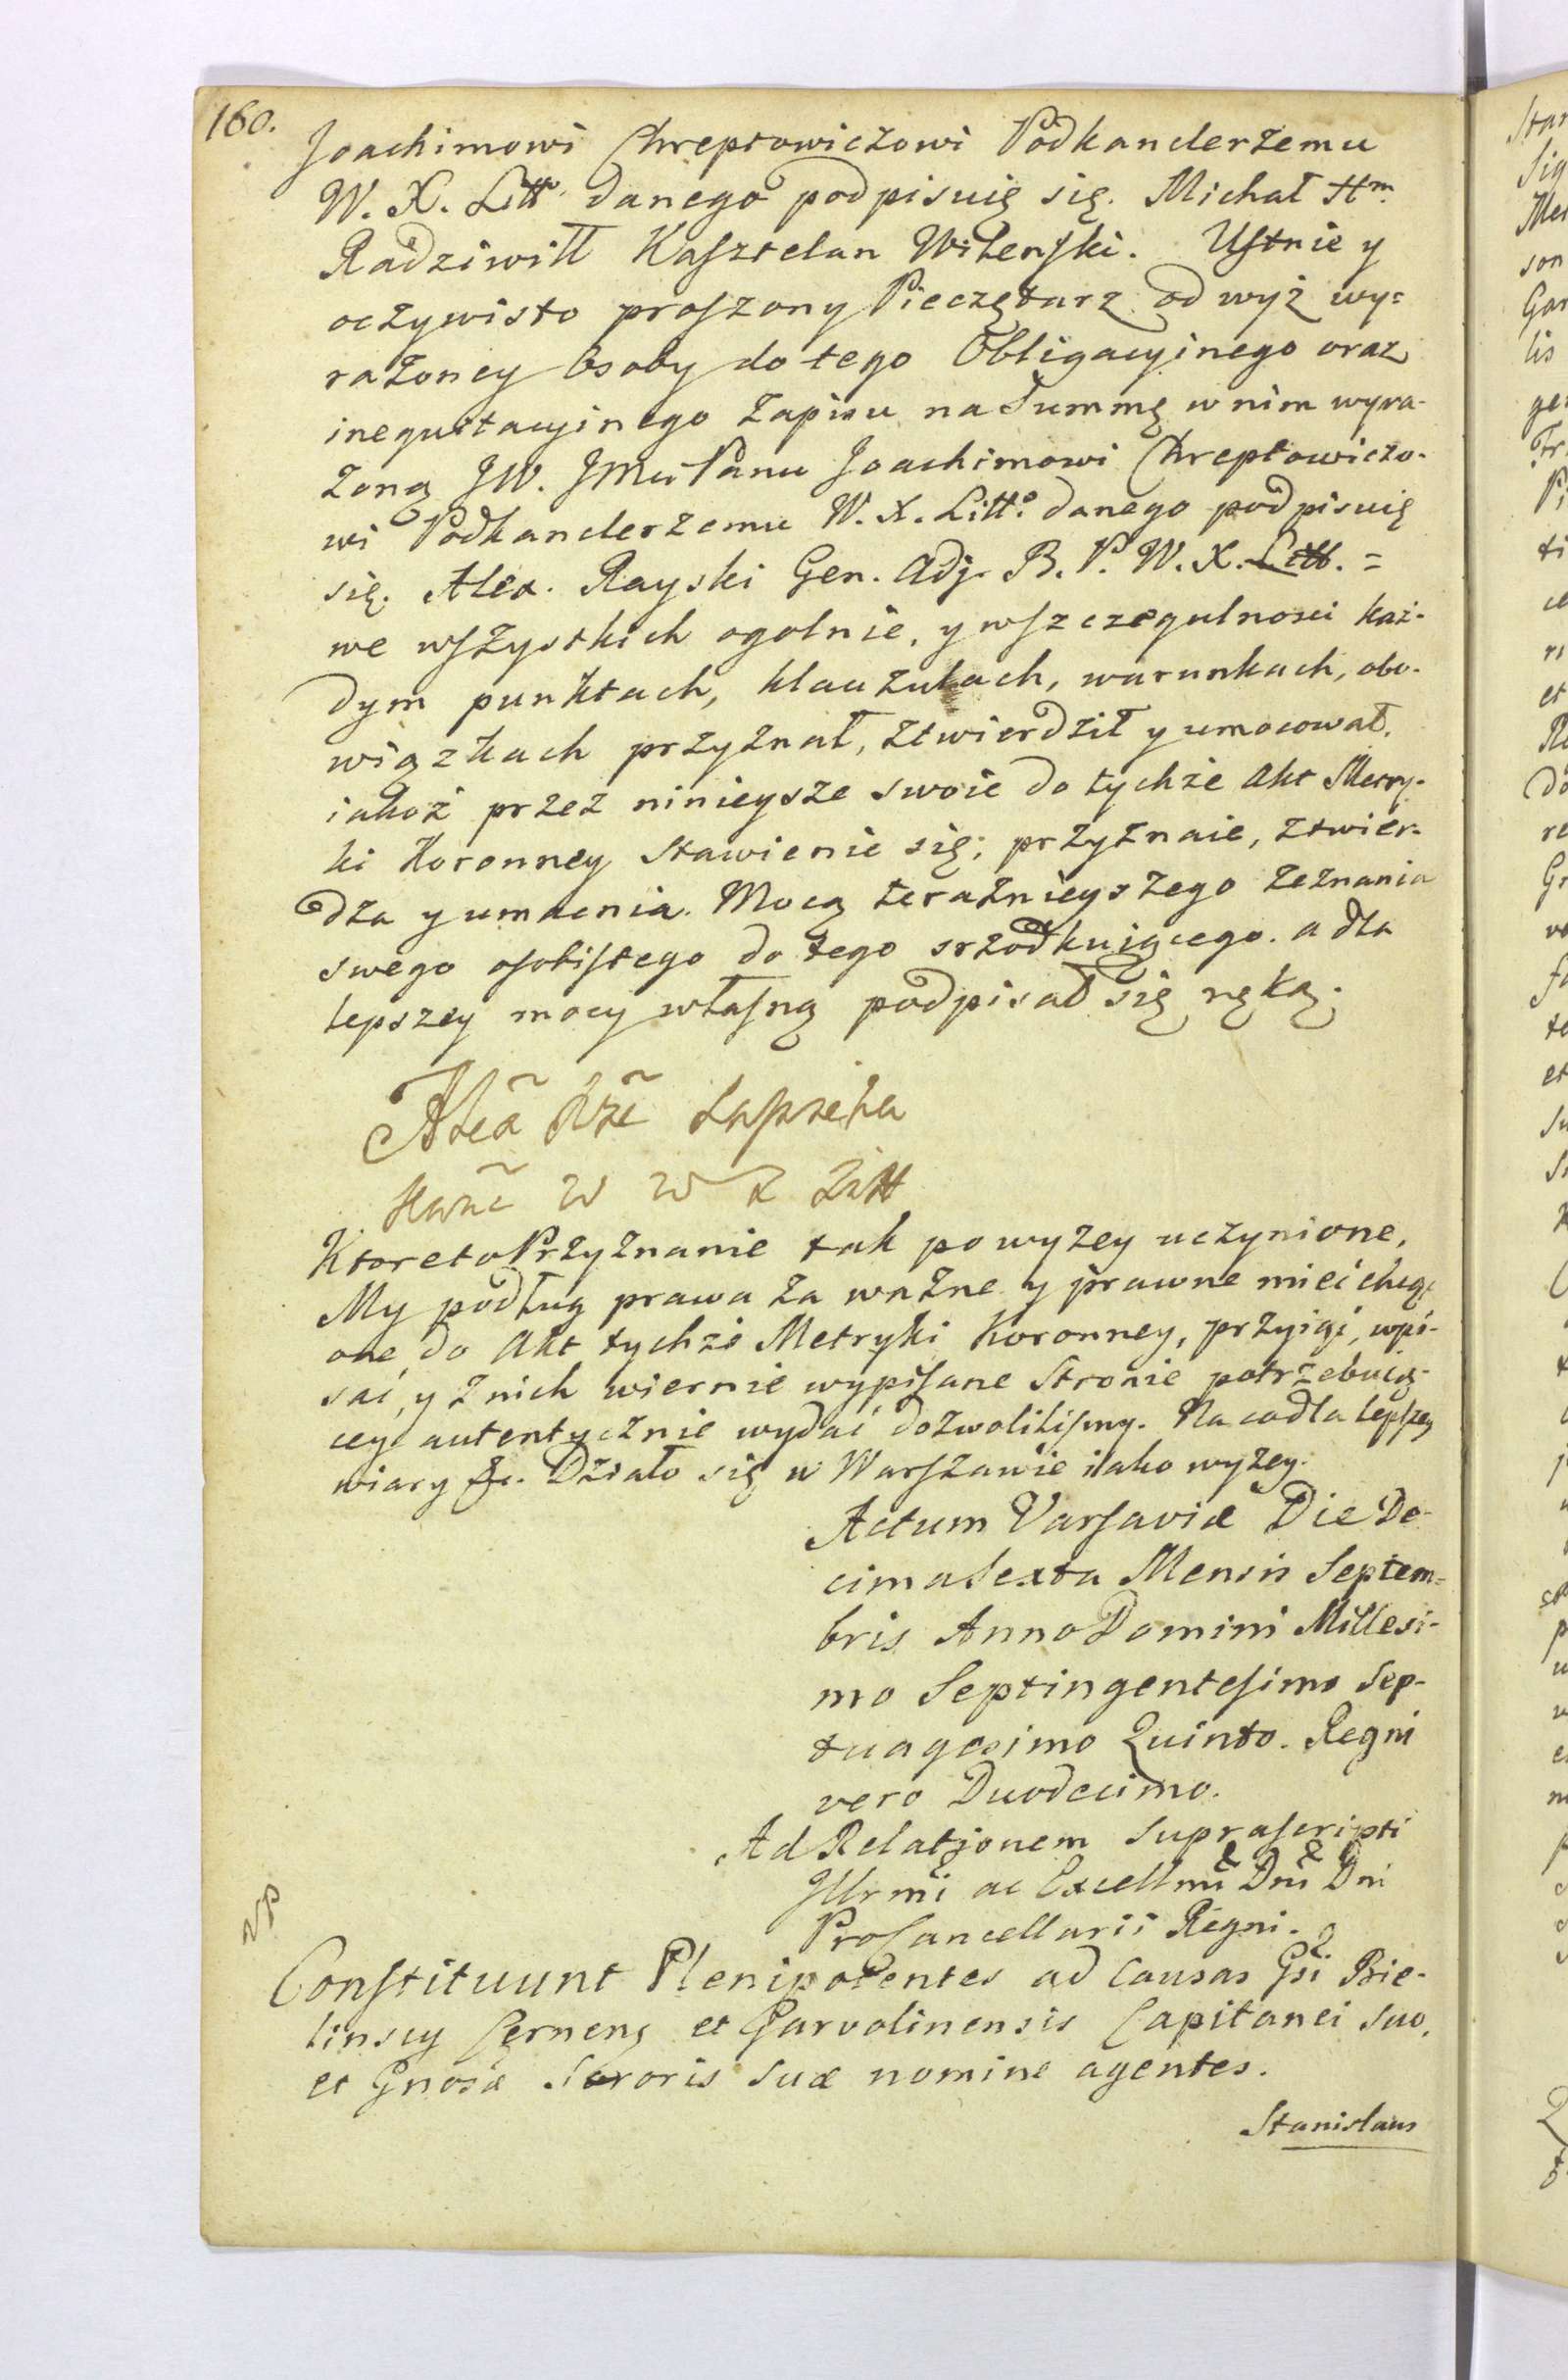 160.
Joachimowi Chreptowiczowi Podkanclerzemu
W. X. Litt° danego podpisuię się. Michał Hm.
Radziwiłł Kasztelan Wileński. Ustnie y
oczywisto proszony Pieczętarz od wyż wy=
rażoney Osoby do tego Obligacyinego oraz
inequitacyinego Zapisu na Summę w nim wyra-
żoną JW. JMci Panu Joachimowi Chreptowiczo-
wi Podkanclerzemu W. X. Litt° danego podpisuię
się. Alex. Rayski Gen. Adj. B. P. W. X. Litt. =
we wszystkich ogolnie, y wszczegulnosci każ-
dym punktach, klauzulach, warunkach, obo-
wiązkach przyznał, ztwierdził y umocował.
iakoż przez ninieysze swoie do tychże Akt Metry-
ki Koronney stawienie się, przyznaie, ztwier-
dza y umacnia. Mocą teraźnieyszego zeznania
swego osobistego do tego srzodkuiącego. a dla
lepszey mocy własną podpisał się ręką.
Alexã Xże Sapieha
Kanc W W X Litt
Ktoreto Przyznanie tak powyzey uczynione,
My podług prawa za ważne y prawne mieć chcąc
one do Akt tychże Metryki Koronney, przyiąć, wpi-
sać, y z nich wiernie wypisane Stronie potrzebuią-
cey autentycznie wydać dozwolilismy. Na co dla lepszey
wiary &c. Działo się w Warszawie iako wyzey.
Actum Varsaviæ Die De-
cima Sexta Mensis Septem=
bris Anno Domini Millesi-
mo Septingentesimo Sep-
tuagesimo Quinto. Regni
vero Duodecimo.
Ad Relationem Suprascripti
Illrmi ac Excellmi Dni Dni
ProCancellarii Regni.
Constituunt Plenipotentes ad Causas Gsi Bie-
linscy Cernens et Garvolinensis Capitanei suo,
et Gnosæ Sororis suæ nomine agentes.
Stanislaus